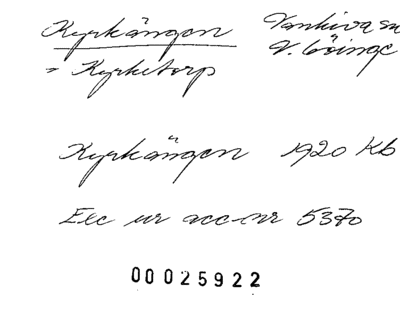 Kyrkängen Vankiva sn
V. Göinge
= Kyrketorp
Kyrkängen 1920 Kb
Exc ur acc-nr 5370
00025922